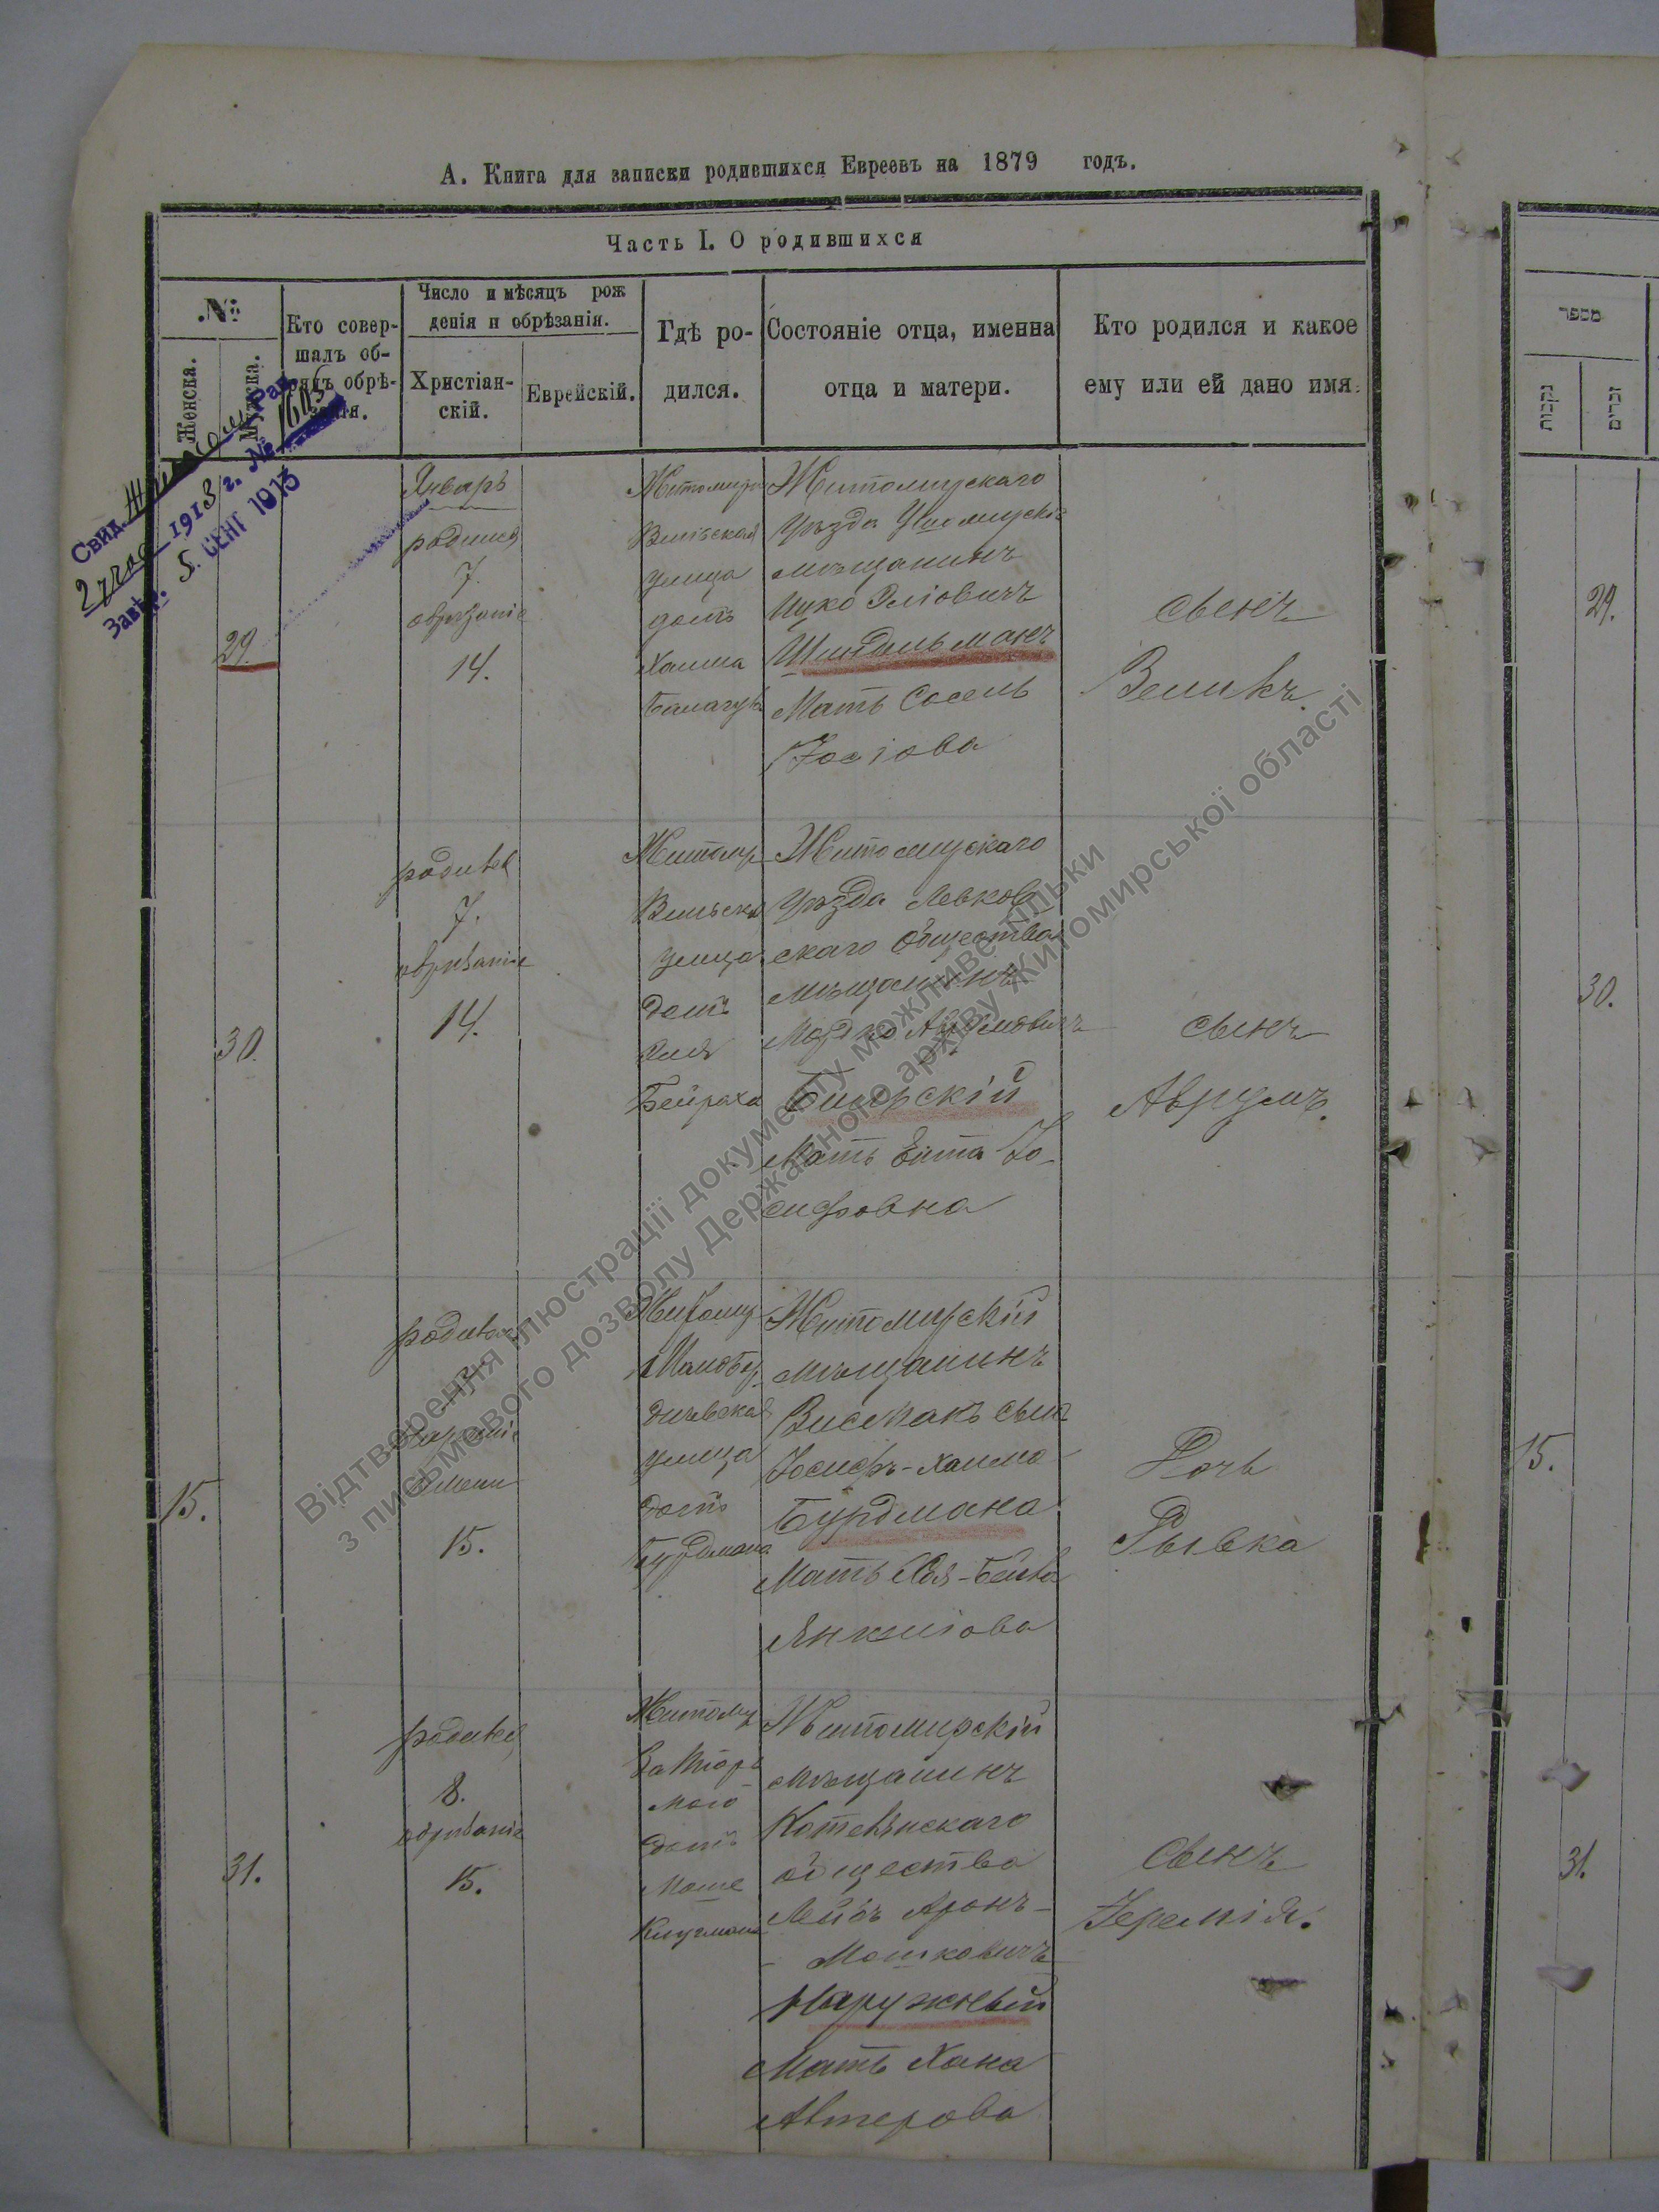 А. Книга для записки родившихся Евреевъ на 1879 годъ.
Часть I. О родившихся
№
Женска.
Мужска.
Кто совер-
шалъ об-
рядъ обрѣ-
занія.
Число и мѣсяцъ рож
денія и обрѣзанія.
Христіан-
скій.
Еврейскій.
Гдѣ ро-
дился.
Состояніе отца, именна
отца и матери.
Кто родился и какое
ему или ей дано имя.
מספר
נקבות
זכרים
Свид.
1913 г. №
Завѣд. 5. СЕНТ 1913
29.
Январь
родился
7.
обрѣзаніе
14.
Житомиръ
Вильская
улица
домъ
Хаима
Житомирскаго
Уѣзда Ушомирскій
мѣщанинъ
Ицко Эліовичъ
Шпидельманъ
Мать Сосель
Іосіова
сынъ
Велвлъ.
29.
30.
родился
7.
обрѣзаніе
14.
Житомир
Вильска
улица
домъ
Эля
Бейраха
Житомирскаго
Уѣзда Левков
скаго общества
мѣщанинъ
Мордко
Бицрскій
Мать Ента Іо-
сифовна
сынъ
Аврумъ.
30.
15.
родилась
7
имени
15.
Житомир
Малобер
дичевская
улица
домъ
Бурдмана
Житомирскій
мѣщанинъ
сынъ
Іосифъ-Хаима
Бурдмана
Мать Хая-Бейла
Янкеліова
Дочь
Рывка
15.
31.
родился
8.
обрѣзаніе
15.
Житомир
домъ
Моше
Житомирскій
мѣщанинъ
Котельнскаго
общества
Лейбъ Аронъ-
Мошковичъ
Наружный
Мать Хана
Алтерова
Сынъ
Іеремія.
31.
Відтворення ілюстрації документу можливе тільки
з письмового дозволу Державного архіву Житомирської області